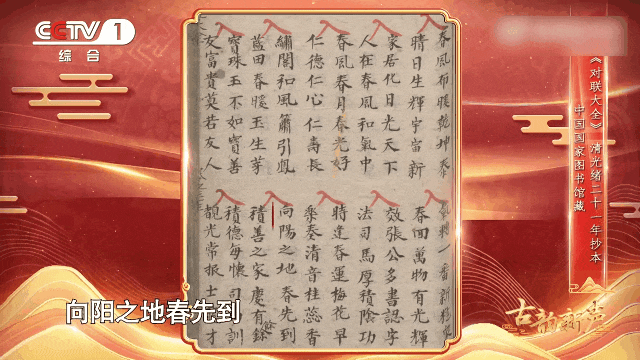 CCTV 1
综合
《对联大全》 清光绪二十一年抄本
中国国家图书馆藏
春風布暖乾坤泰
晴日生輝宇宙新
家居化日光天下
人在春風和氣中
春風春月春光好
仁德仁心仁壽長
繡閣和風簫引鳳
藍田春暖玉生芽
寶珠玉不如寶善
友富貴莫若友人
春回萬物有光輝
效張公多書認字
法司馬厚積陰功
時逢春運梅花早
樂奏清音桂蕊香
向陽之地 春先到
積善之家 慶有餘
積德每懷司馬訓
觀光常振士人才
向阳之地春先到
古韵新声